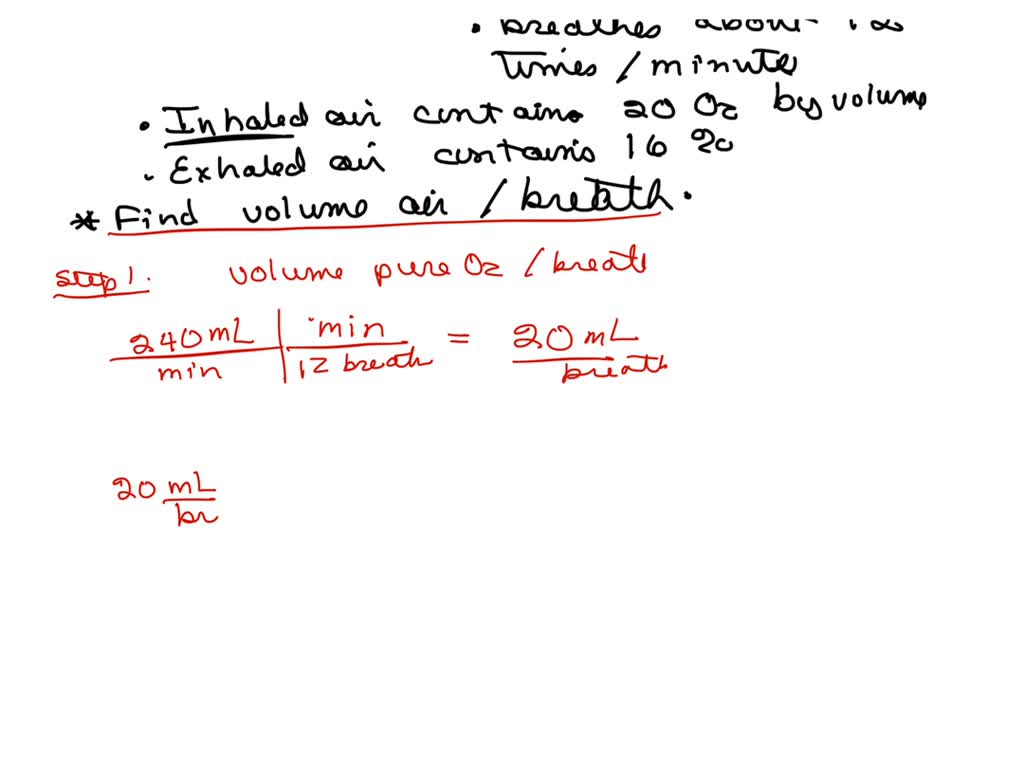 • Breathes about 12
Times / minute
• Inhaled air contains 20 O2 by volume
• Exhaled air contains 16 %
* Find volume air / breath.
Step 1. volume pure O2 / breath
240 mL | min = 20 mL
min | 12 breath breath
20 mL
br